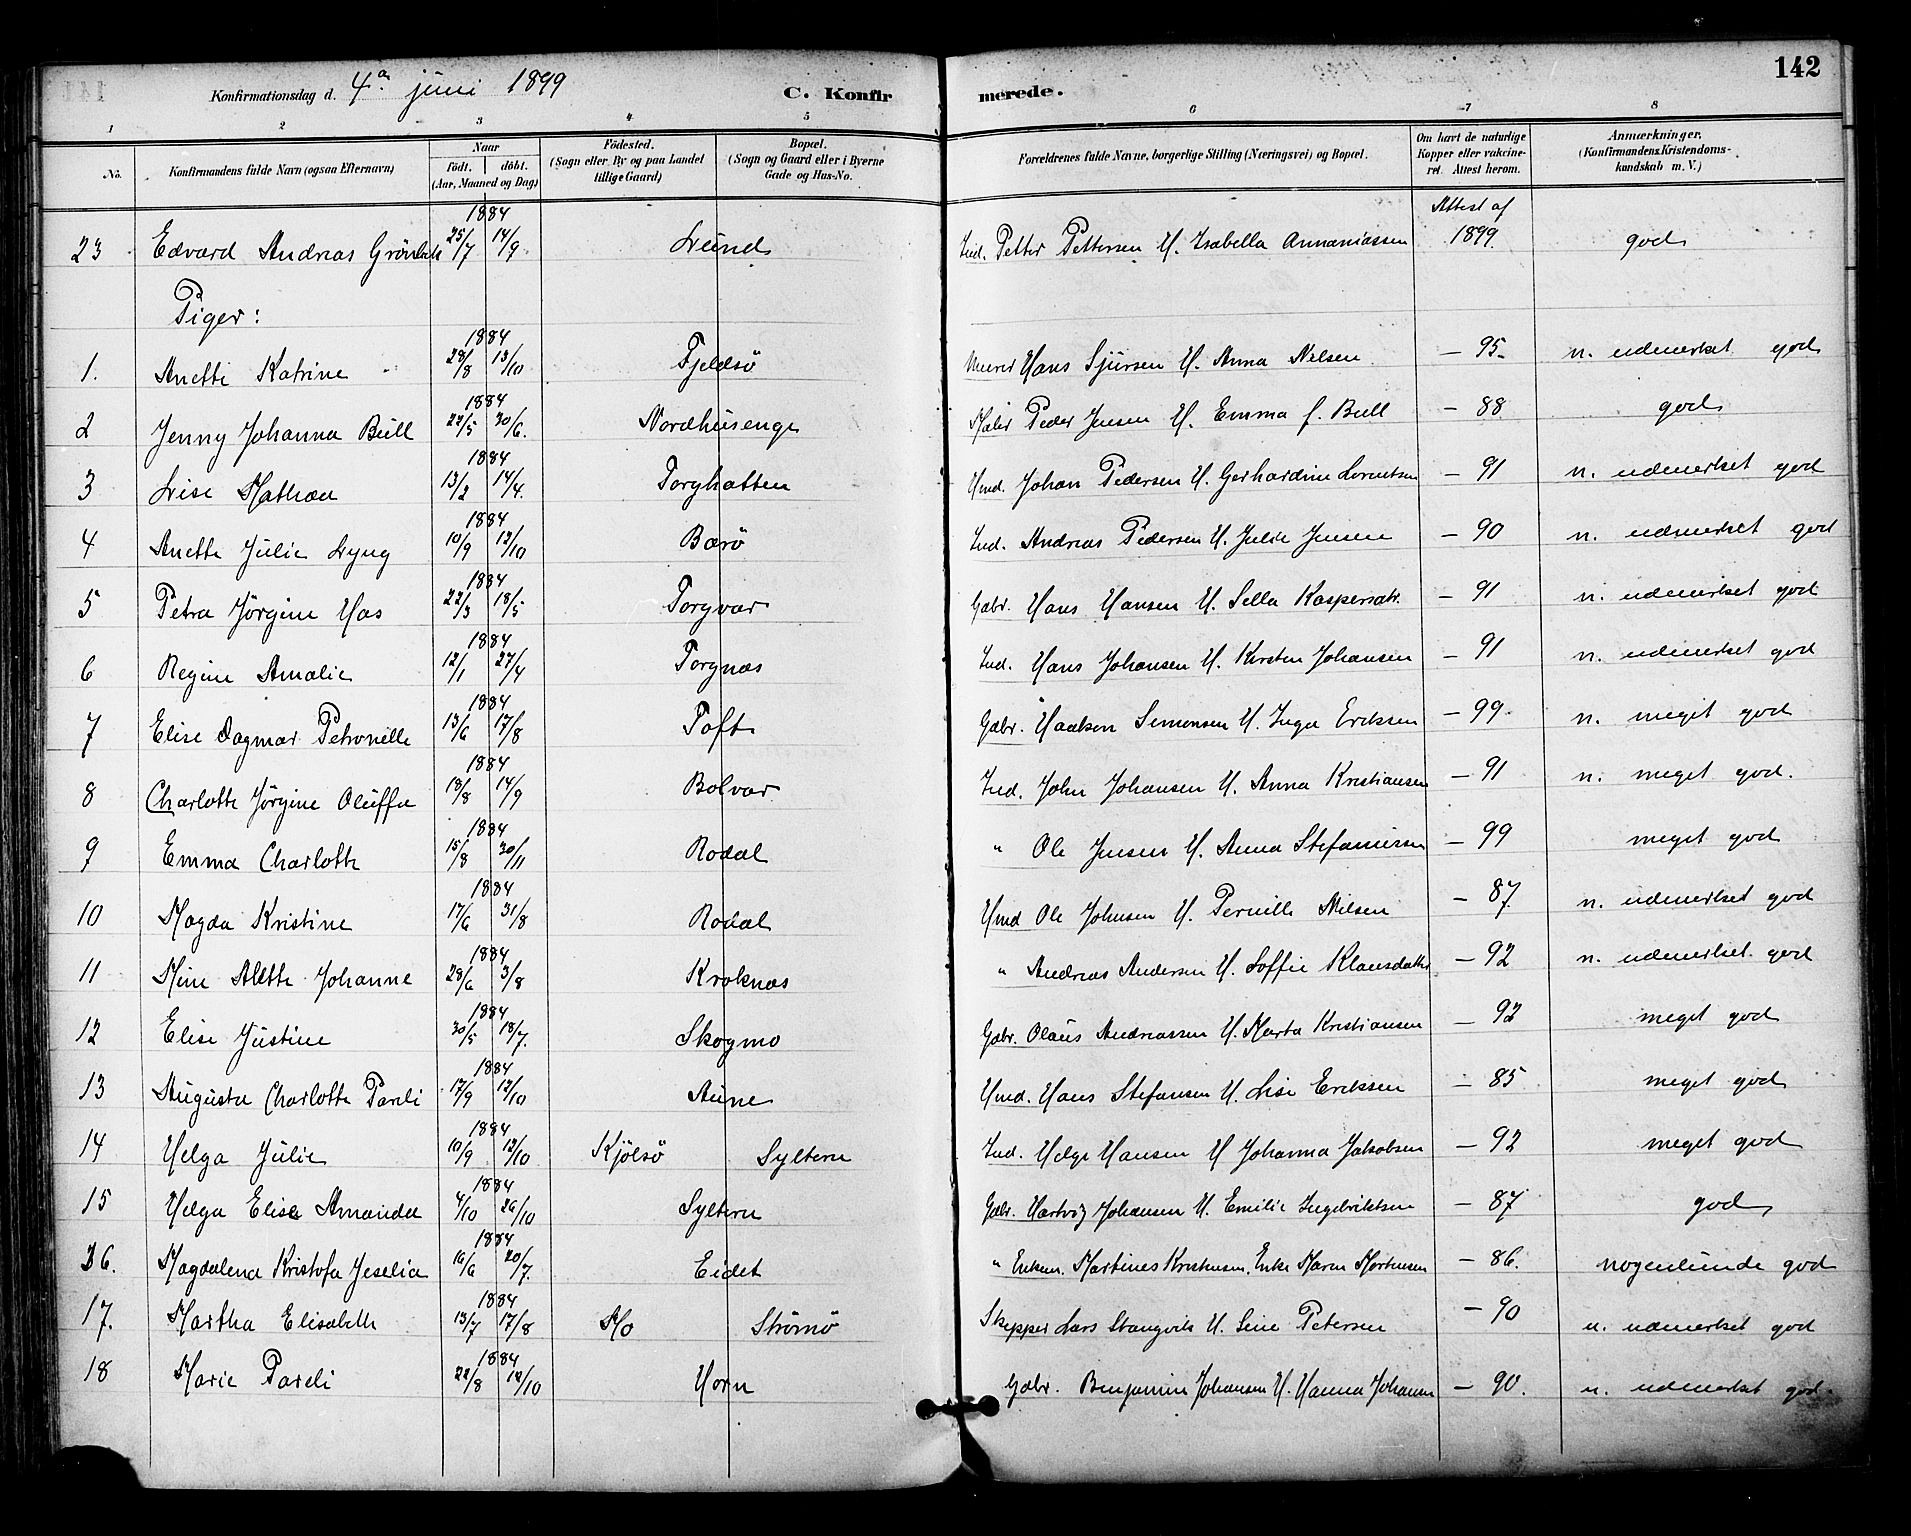 142
Konfirmationsdag d. 4de juni 1899 C. Konfirmerede.
1 2 3 4 5 6 7 8
No. Konfirmandens fulde Navn (ogsaa Efternavn) Naar født. døbt. (Aar, Maaned og Dag) Fødested. (Sogn eller By og paa Landet tillige Gaard) Bopæl. (Sogn og Gaard eller i Byerne Gade og Hus-No. Forældrenes fulde Navne, borgerlige Stilling (Næringsvei) og Bopæl. Om havt de naturlige Kopper eller vakcineret. Attest herom. Anmærkninger, (Konfirmandens Kristendomskundskab m. V.)
23 Edvard Andreas Grönbeck 1884 25/7 14/9 Lund Ind. Petter Pettersen H. Isabella Annaniassen Attest af 1899 god
Piger:
1. Anette Katrine 1884 28/8 13/10 Fjeldsö Hans Sjursen H. Anna Nilsen — 95. n. udmerket god
2 Jenny Johanna Bull 1884 22/5 30/6. Nordhuseng Peder Jensen H. Emma f. Bull — 88 god
3 Lise Mathea 1884 13/2 14/4. Torghatten Hmd. Johan Pedersen H. Gerhardine Lorentsen — 91 n. udmerket god
4 Anette Julie Lyng 1884 10/9 12/10 Bærö Ind. Andreas Pedersen H. Julie Jensen — 90 n. udmerket god
5 Petra Jörgine Has 1884 22/3 18/5 Torgvær Gbr. Hans Hansen H. Sella Kaspersdt. — 91 n. udmerket god
6 Regine Amalie 1884 12/1 27/4 Torgnæs Ind. Hans Johansen H. Kirsten Johansen — 91 n. udmerket god
7 Elise Dagmar Petronille 1884 13/6 17/8 Toft Gbr. Haakon Simonsen H. Inga Eriksen — 99 n. meget god
8 Charlotte Jörgine Oluffa 1884 18/8 14/9 Bolvær Ind. John Johansen H. Anna Kristiansen — 91 n. meget god.
9 Emma Charlotte 1884 15/8 30/11 Rodal " Ole Jensen H. Anna — 99 meget god
10 Magda Kristine 1884 17/6 31/8 Rodal Hmd Ole Johnsen H. Pernille Nilsen — 87. n. udmerket god
11 Mine Alette Johanne 1884 28/6 3/8 Kroknes " Andreas Andersen H. Soffie Klausdatter — 92 n. udmerket god
12 Elise Justine 1884 30/5 18/7. Skogmo Gbr. Olaus Andreassen H. Marta Kristiansen — 92 meget god
13 Augusta Charlotte Pareli 1884 17/9 12/10 Aune Hmd. Hans Stefansen H. Lise Eriksen — 85 meget god
14 Helga Julie 1884 10/9 12/10 Kjölsö Syltern Ind. Helge Hansen H Johanna Jakobsen — 92 meget god
15 Helga Elise Amanda 1884 4/10 26/10 Syltern Gbr. Hartvig Johansen H. Emilie Ingebriktsen — 87 god
16. Magdalena Kristofa Jeselia 1884 16/6 20/7. Eidet " Enkem. Martines Kristensen, Enke Maren Mortensen — 86. nogenlunde god
17. Martha Elisabeth 1884 13/7 17/8 Mo Strömö Skepper Lars Stangvik H. Line Petersen — 90 n. udmerket god
18 Marie Pareli 1884 22/8 12/10 Horn Gbr. Benjamin Johansen H. Hanna Johansen — 90. n. udmerket god.